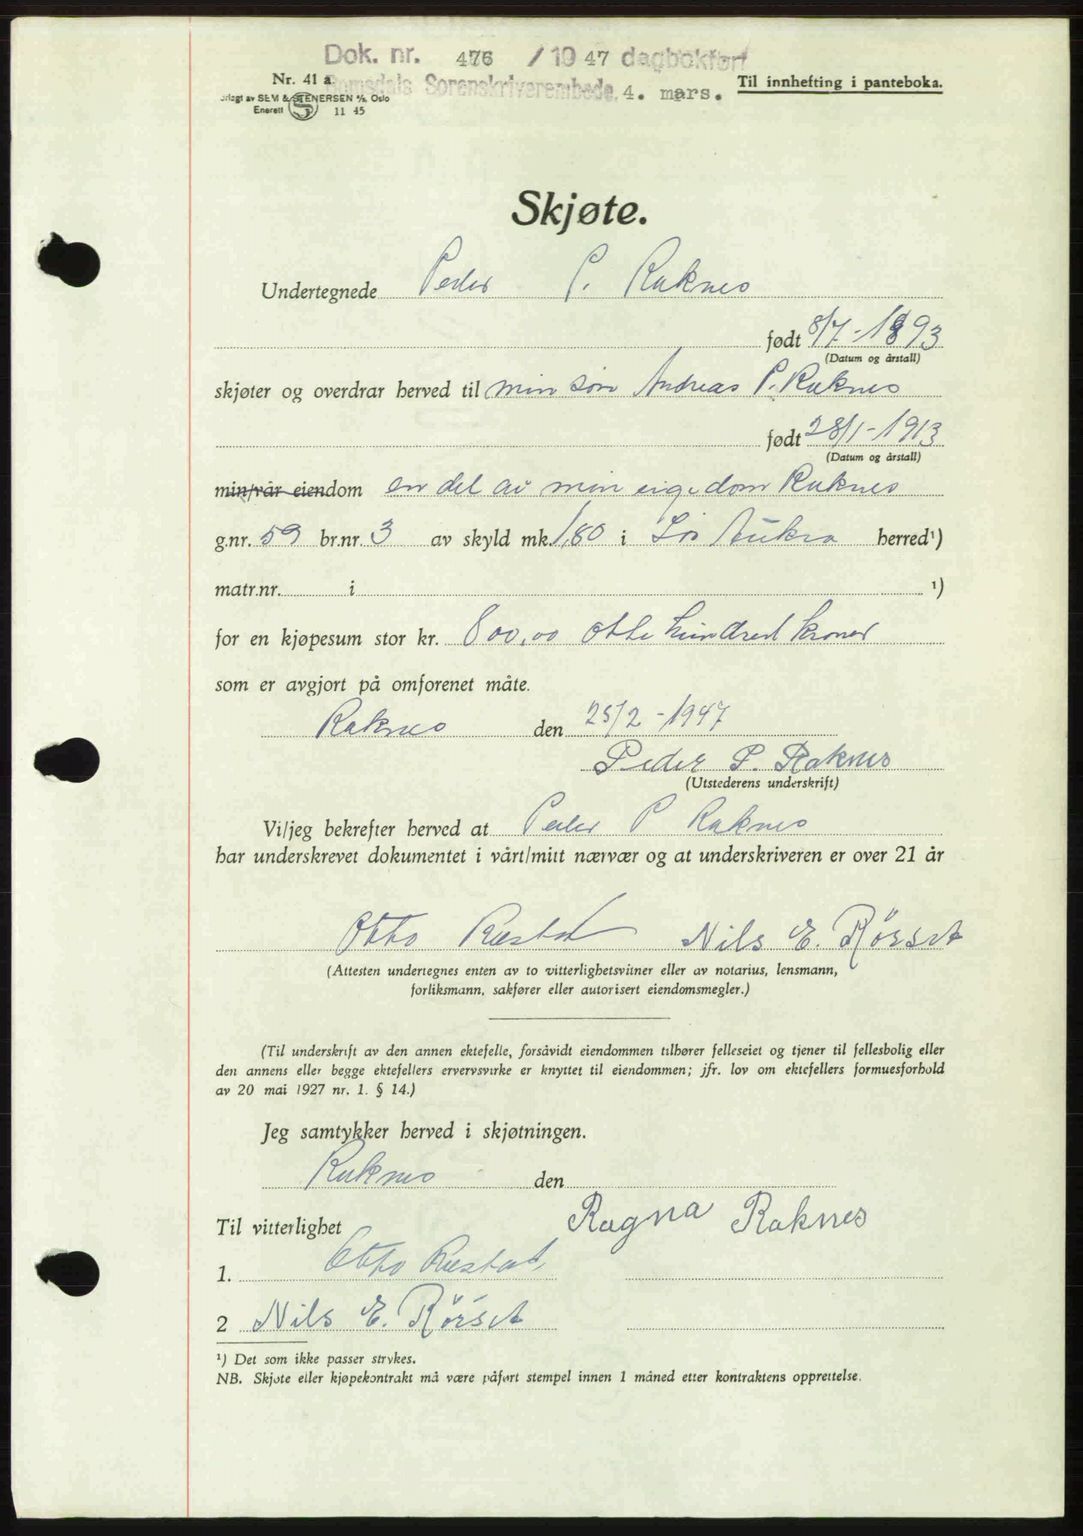 Dok. nr. 476 / 1947 dagbokført
Nr. 41 a. Romsdals Sorenskriverembede, 4. mars. Til innhefting i panteboka.
SEM & STENERSEN A/S, Oslo
Enerett 11 45
Skjøte.
Undertegnede Peder P. Raknes
født 8/7-1893
(Datum og årstall)
skjøter og overdrar herved til min søn Andreas P. Raknes
født 28/1-1913
(Datum og årstall)
min/vår eiendom en del av min eigedom Raknes
g.nr. 59 br.nr. 3 av skyld mk. 1,80 i Sør Aukra herred¹)
matr.nr. i ¹)
for en kjøpesum stor kr. 800,00 otte hundred kroner
som er avgjort på omforenet måte.
Raknes den 25/2-1947
Peder P. Raknes
(Utstederens underskrift)
Vi/jeg bekrefter herved at Peder P Raknes
har underskrevet dokumentet i vårt/mitt nærvær og at underskriveren er over 21 år
Otto Nils E. Rørset
(Attesten undertegnes enten av to vitterlighetsvitner eller av notarius, lensmann,
forliksmann, sakfører eller autorisert eiendomsmegler.)
(Til underskrift av den annen ektefelle, forsåvidt eiendommen tilhører felleseiet og tjener til fellesbolig eller
den annens eller begge ektefellers ervervsvirke er knyttet til eiendommen; jfr. lov om ektefellers formuesforhold
av 20 mai 1927 nr. 1. § 14.)
Jeg samtykker herved i skjøtningen.
Raknes den
Til vitterlighet Ragna Raknes
1. Otto
2 Nils E. Rørset
¹) Det som ikke passer strykes.
NB. Skjøte eller kjøpekontrakt må være påført stempel innen 1 måned etter kontraktens opprettelse.